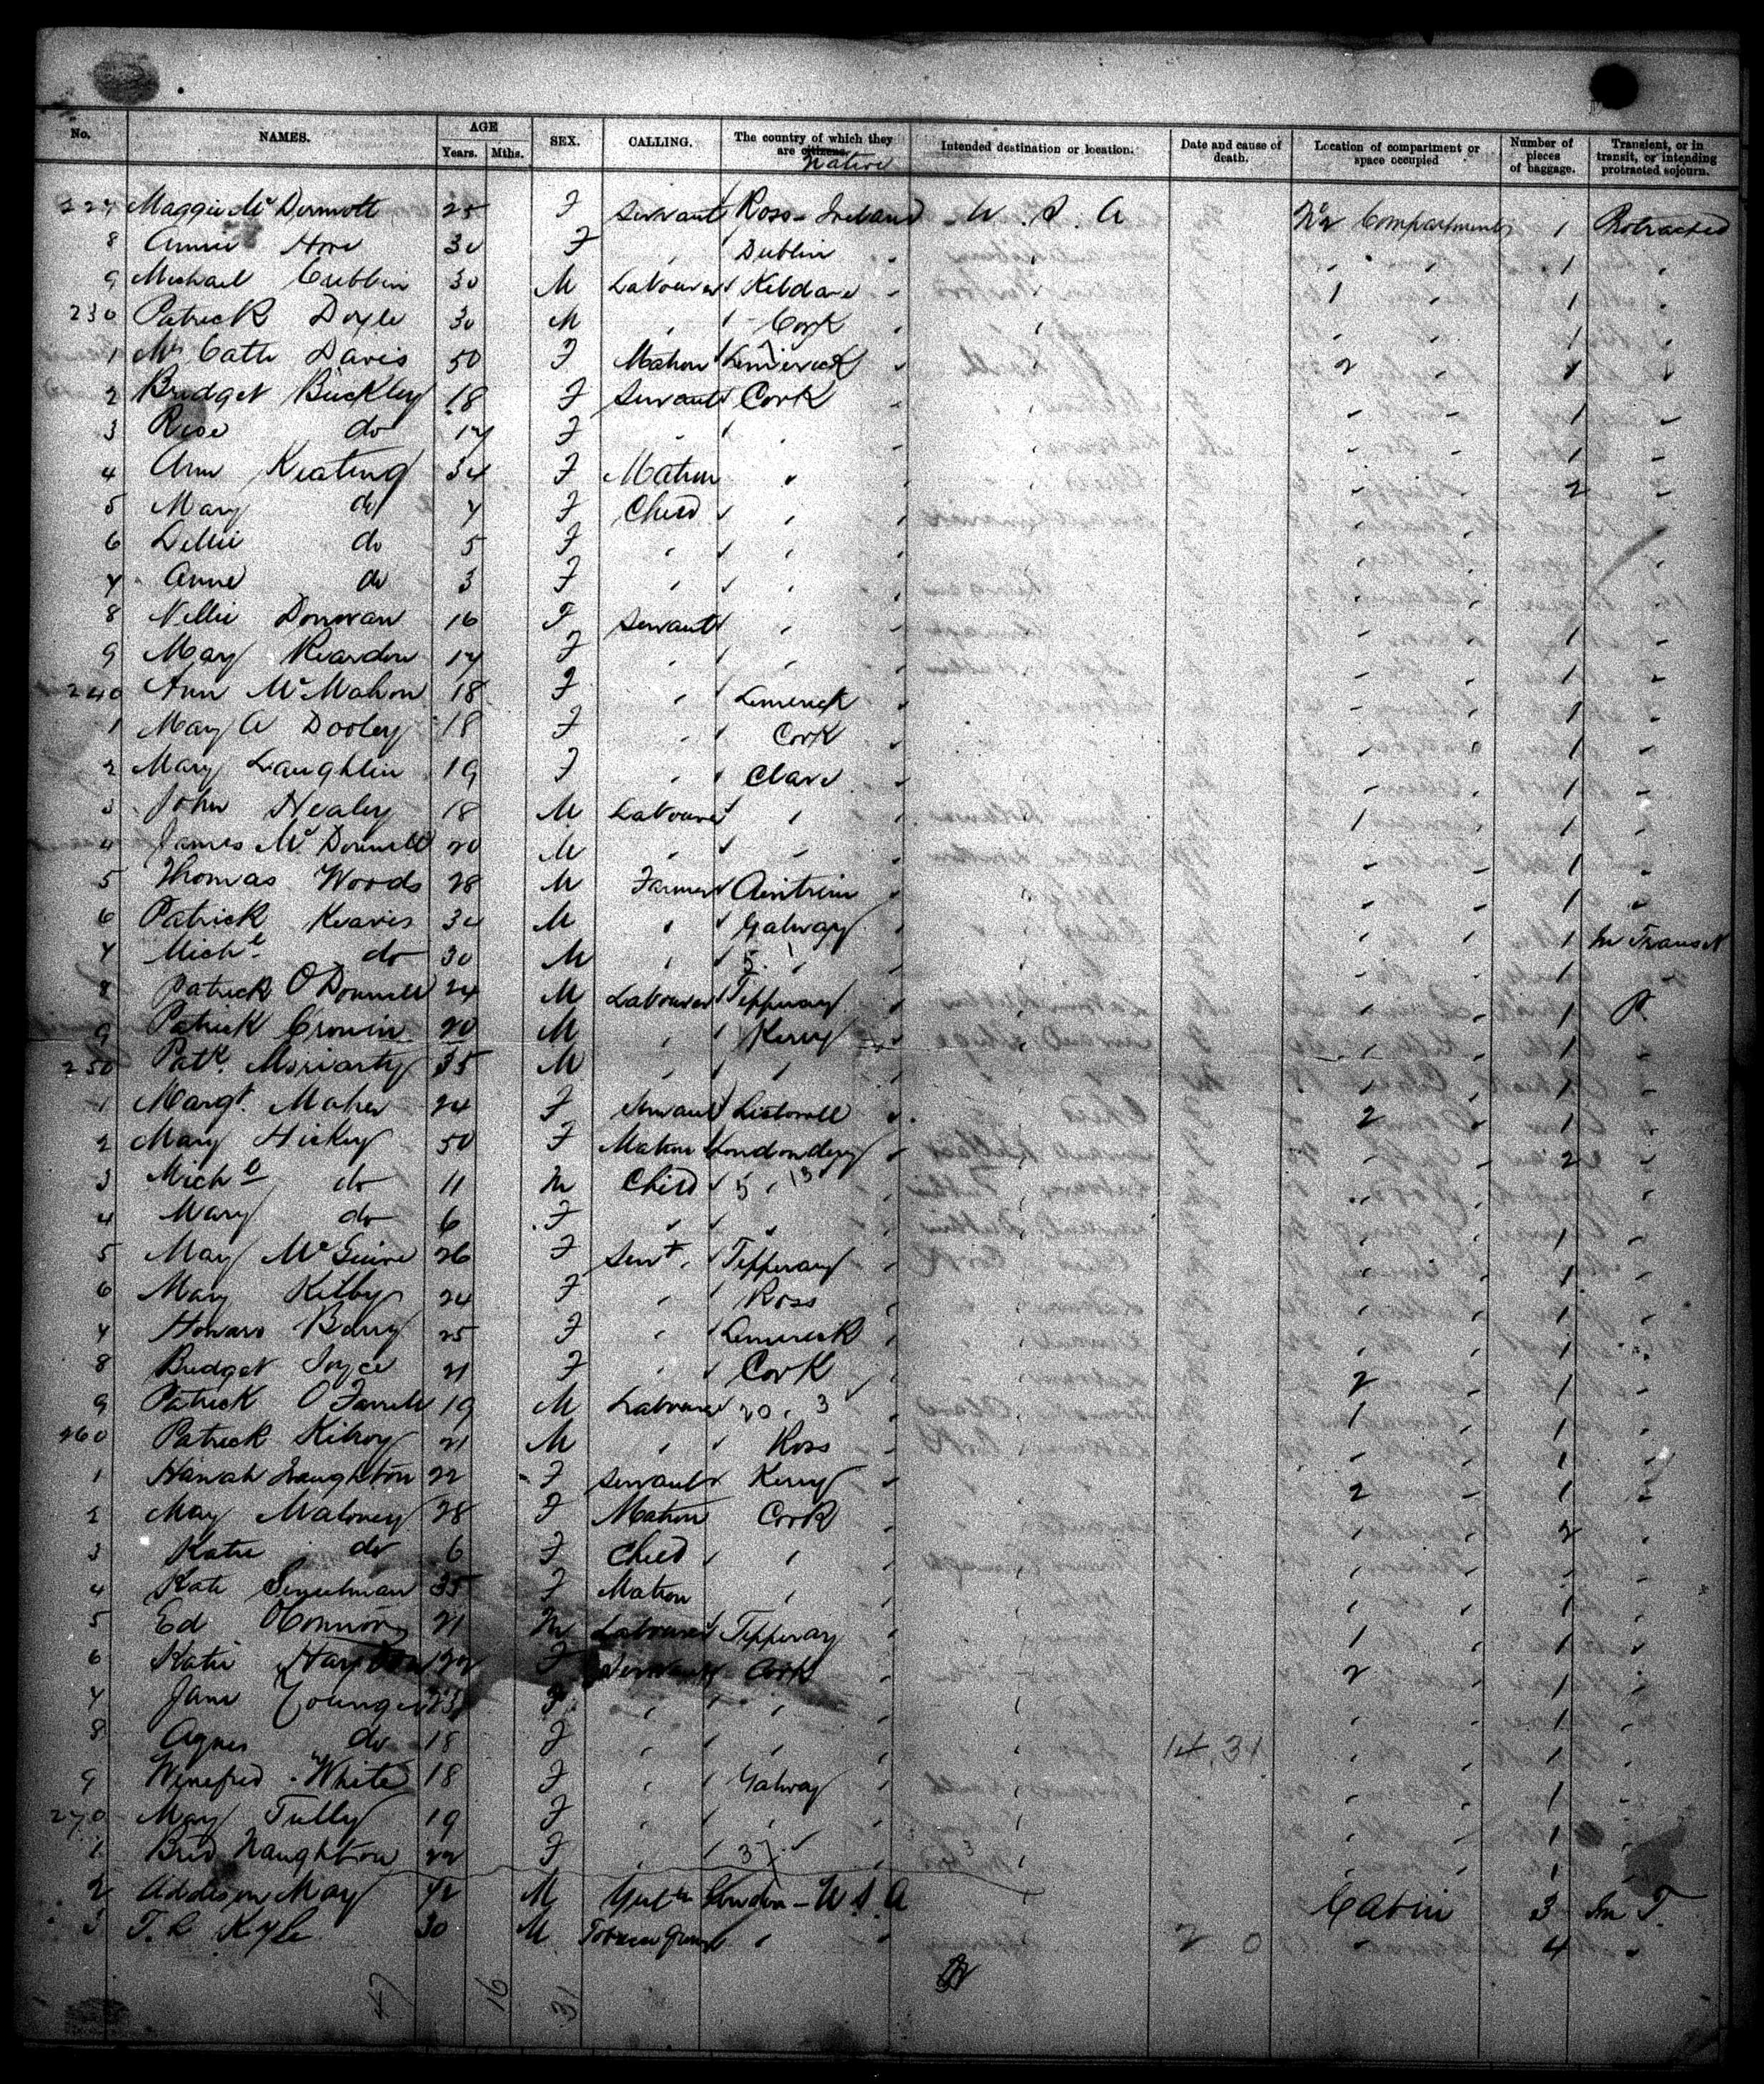 No. NAMES. AGE Years. Mths. SEX. CALLING. The country of which they are citizens. Native Intended destination or location. Date and cause of death. Location of compartment or space occupied Number of pieces of baggage. Transient, or in transit, or intending protracted sojourn.
227 Maggie McDermott 25 F Servant Ross-Ireland U.S.A No 2 Compartment 1 Protracted
8 Annie Hore 30 F " Dublin " 1 "
9 Michael Cribbin 30 M Labourer Kildare " 1 1 "
230 Patrick Doyle 30 M " Cork " 1 "
1 Mrs Cath Davis 50 F Matron Limerick " 2 1 "
2 Bridget Buckley 18 F Servant Cork 1 "
3 Rose do 17 F " " 1 "
4 Ann Keating 34 F Matron " 2 "
5 Mary do 7 F Child " "
6 Lillie do 5 F " "
7 Anne do 3 F " "
8 Nellie Donovan 16 F Servant " 1 "
9 Mary Reardon 17 F " " 1 "
240 Ann McMahon 18 F " Limerick 1 "
1 Mary A Dooley 18 F " Cork 1 "
2 Mary Laughlin 19 F " Clare 1 "
3 John Healey 18 M Labourer " 1 1 "
4 James McDonnell 20 M " " 1 "
5 Thomas Woods 28 M Farmer Antrim 1 "
6 Patrick Keaves 34 M " Galway 1 In Transit
7 Michl do 30 M " " 1 "
8 Patrick O'Donnell 24 M Labourer Tipperary 1 P.
9 Patrick Cronin 20 M " Kerry 1 "
250 Patk. Moriarty 35 M " " 1 "
1 Margt. Maher 24 F Servant Listowell 2 1 "
2 Mary Hickey 50 F Matron Londonderry 2 "
3 Michl do 11 M Child 5 13
4 Mary do 6 F " " 1 "
5 Mary McGuire 26 F Servt. Tipperary 1 "
6 Mary Kilby 24 F " Ross 1 "
7 Howard Barry 25 F " Limerick 1 "
8 Bridget Joyce 21 F " Cork 2 1 "
9 Patrick O'Farrell 19 M Labourer 20 3 1 1 "
260 Patrick Kilroy 21 M " Ross 1 "
1 Hanah Naughton 22 F Servant Kerry 2 1 "
2 May Maloney 28 F Matron Cork 2 "
3 Katie do 6 F Child " "
4 Kate 35 F Matron " 1 "
5 Ed O'Connor 21 M Labourer Tipperary 1 1 "
6 Katie 22 F Servant Cork 2 1 "
7 Jane Younger 23 F " " 1 "
8 Agnes do 18 F " " 14.31 1 "
9 Winefred White 18 F " Galway 1 "
270 May Tully 19 F " " 1 "
1 Brid Naughton 22 F " 37 1 "
2 Addison May 42 M London - U.S.A Cabin 3 In T.
3 T. R Kyle 30 M " 2 0 " 4 "
47 16 31